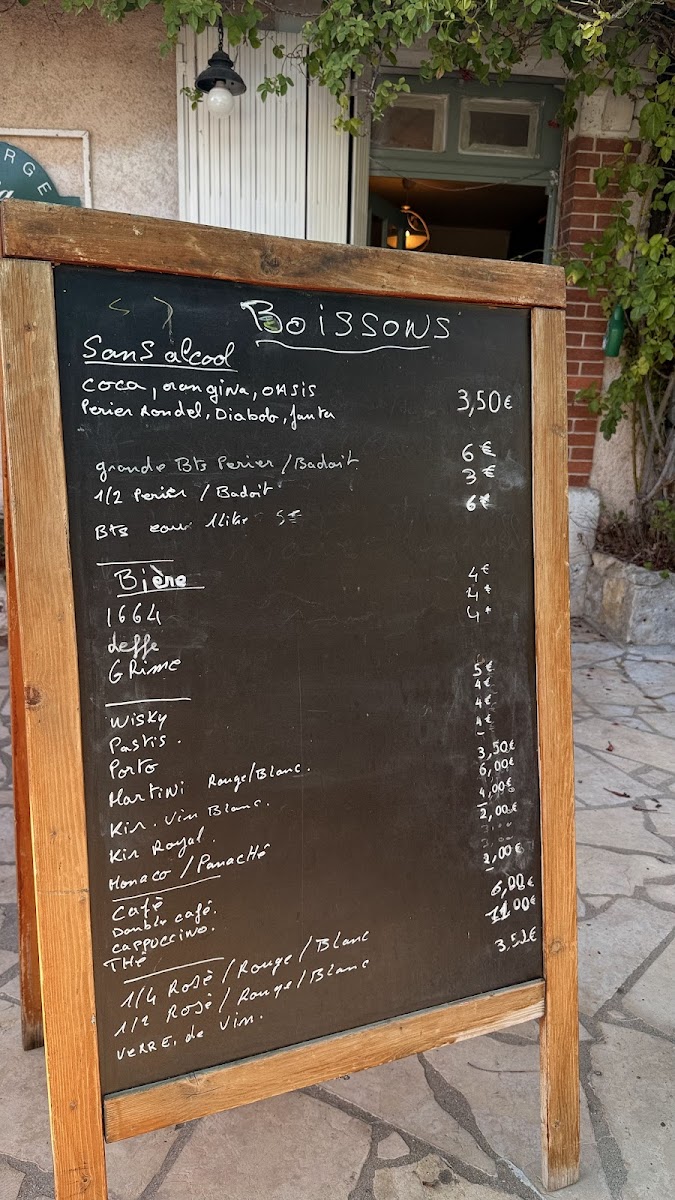 RGE
Boissons
Sans alcool
coca, orangina, OASIS
Perier Rondel, Diabolo, fanta 3,50€
grande Bts Perier / Badoit 6€
1/2 Perier / Badoit 3€
Bts eau 1 litre 5€ 6€
Bière
1664 4€
Leffe 4€
GRime 4€
Wisky 5€
Pastis. 4€
Porto 4€
Martini Rouge/Blanc. 4€
Kir. Vin Blanc. 3,50€
Kir Royal. 6,00€
Monaco / PanacHé 4,00€
Café 2,00€
Double café.
cappuccino.
THé 2,00€
1/4 Rosè / Rouge / Blanc 6,00€
1/2 Rosè / Rouge / Blanc 11,00€
VeRRE. de Vin. 3,52€